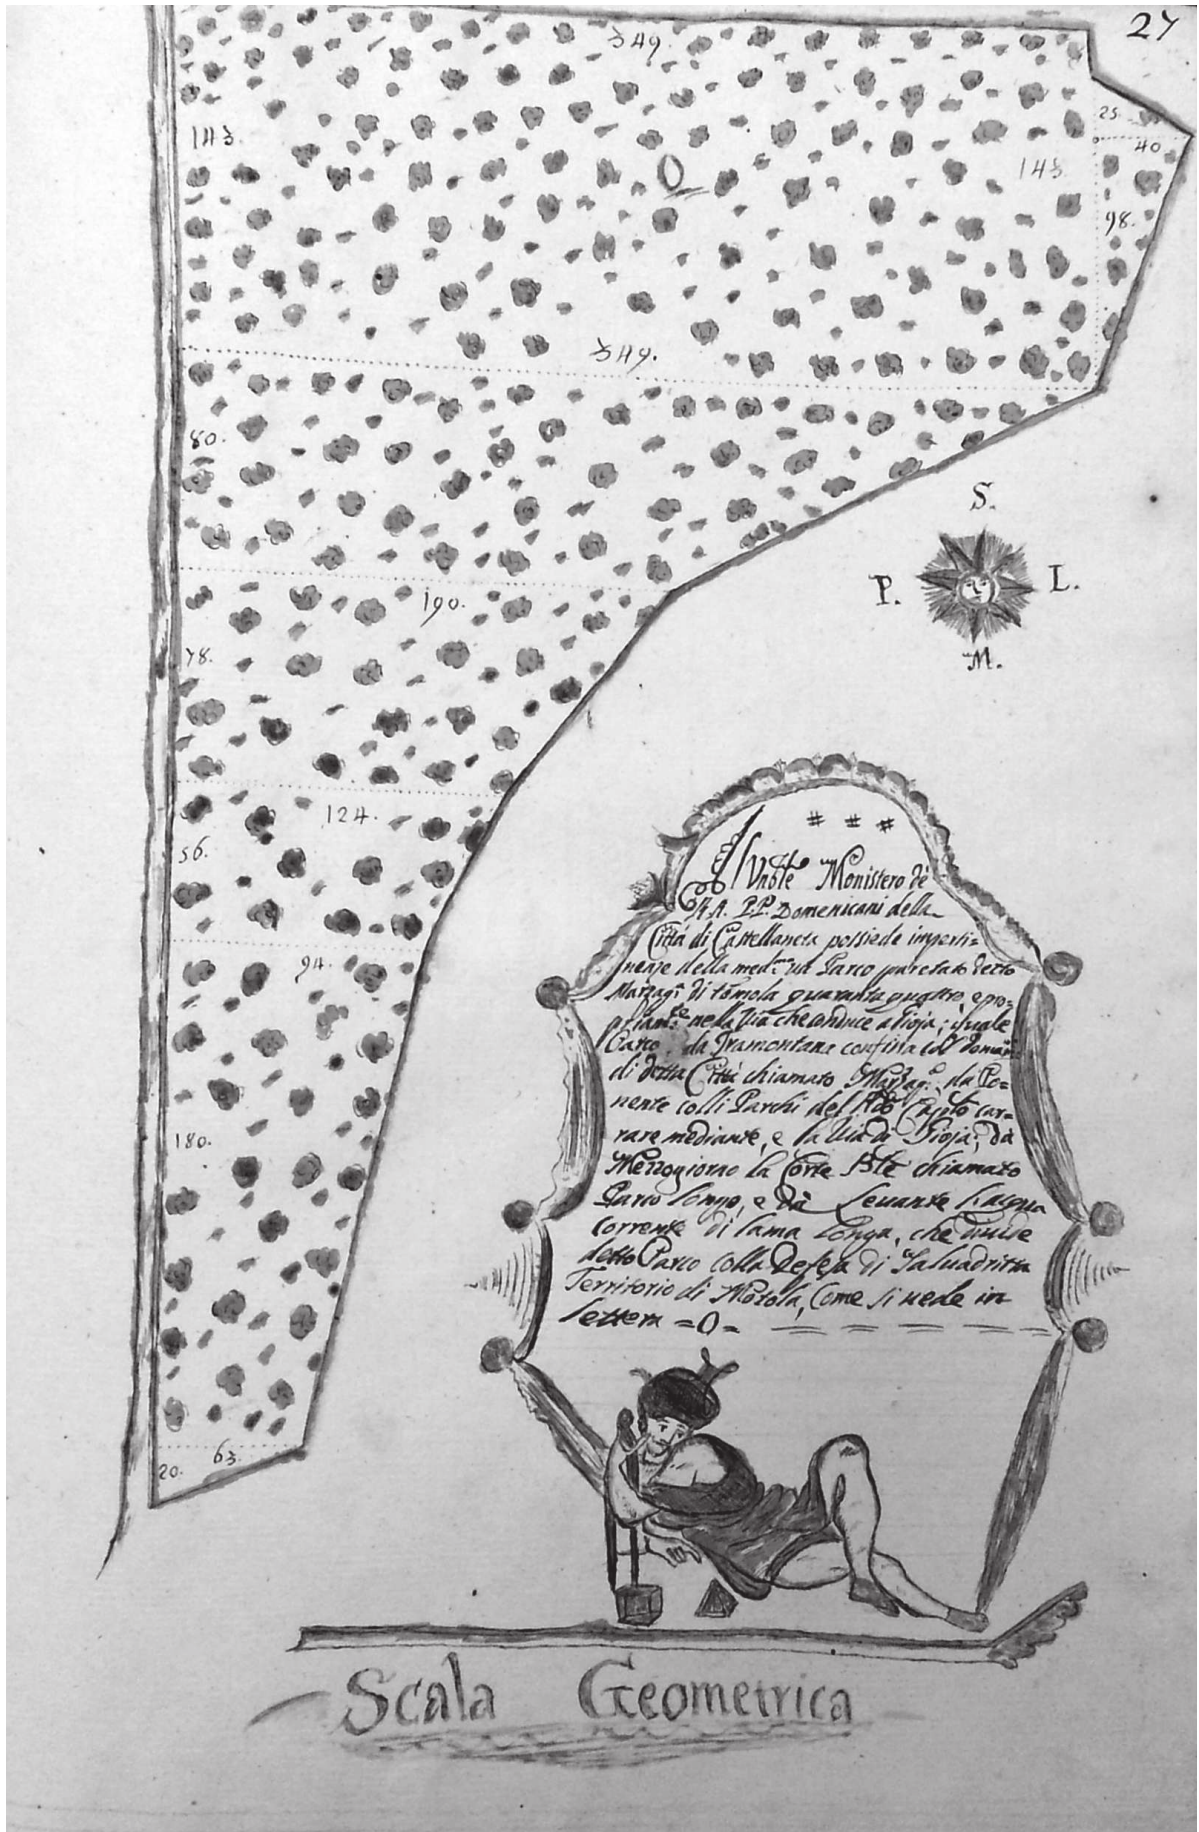 27
349.
143.
25
40
143
0
98.
349.
80.
S.
P. L.
M.
190.
78.
124.
56.
94.
180.
63
20.
# # #
Il Vnble Monistero de
RR. P.P. Domenicani della
Città di Castellaneta possiede imperti=
nenze della med.ma un Parco paretato detto
Marzag.a di tomola quaranta quattro, e pro=
priam.te nella Via che conduce a Gioja; quale
Parco da Tramontana confina col Demanio
di detta Città chiamato Marzag.a da Po=
nente colli Parchi del Rdo Capito car=
rare mediante, e la Via di Gioja; da
Mezzogiorno la Corte Ble chiamato
Parco longo, e da Levante l'acqua
corrente di lama longa, che divide
detto Parco colla Defesa di
Territorio di Motola, Come si vede in
lettera =O=
Scala Geometrica